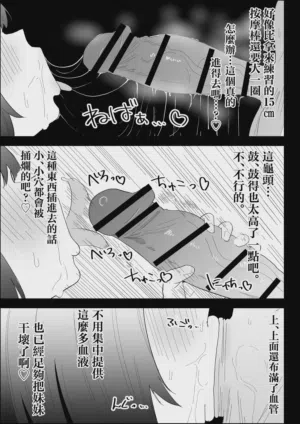 好像比拿來練習的15㎝
按摩棒還要大一圈
怎麼辦…這個真的
進得去嗎…?♡
ねばぁ…♡
這龜頭…
鼓、鼓得也太高了一點吧。
不、不行的。
這種東西插進去的話
小、小穴都會被
捅爛的吧?♡
上、上面還布滿了血管
不用集中提供
這麼多血液
也已經足夠把妹妹
干壞了啊♡